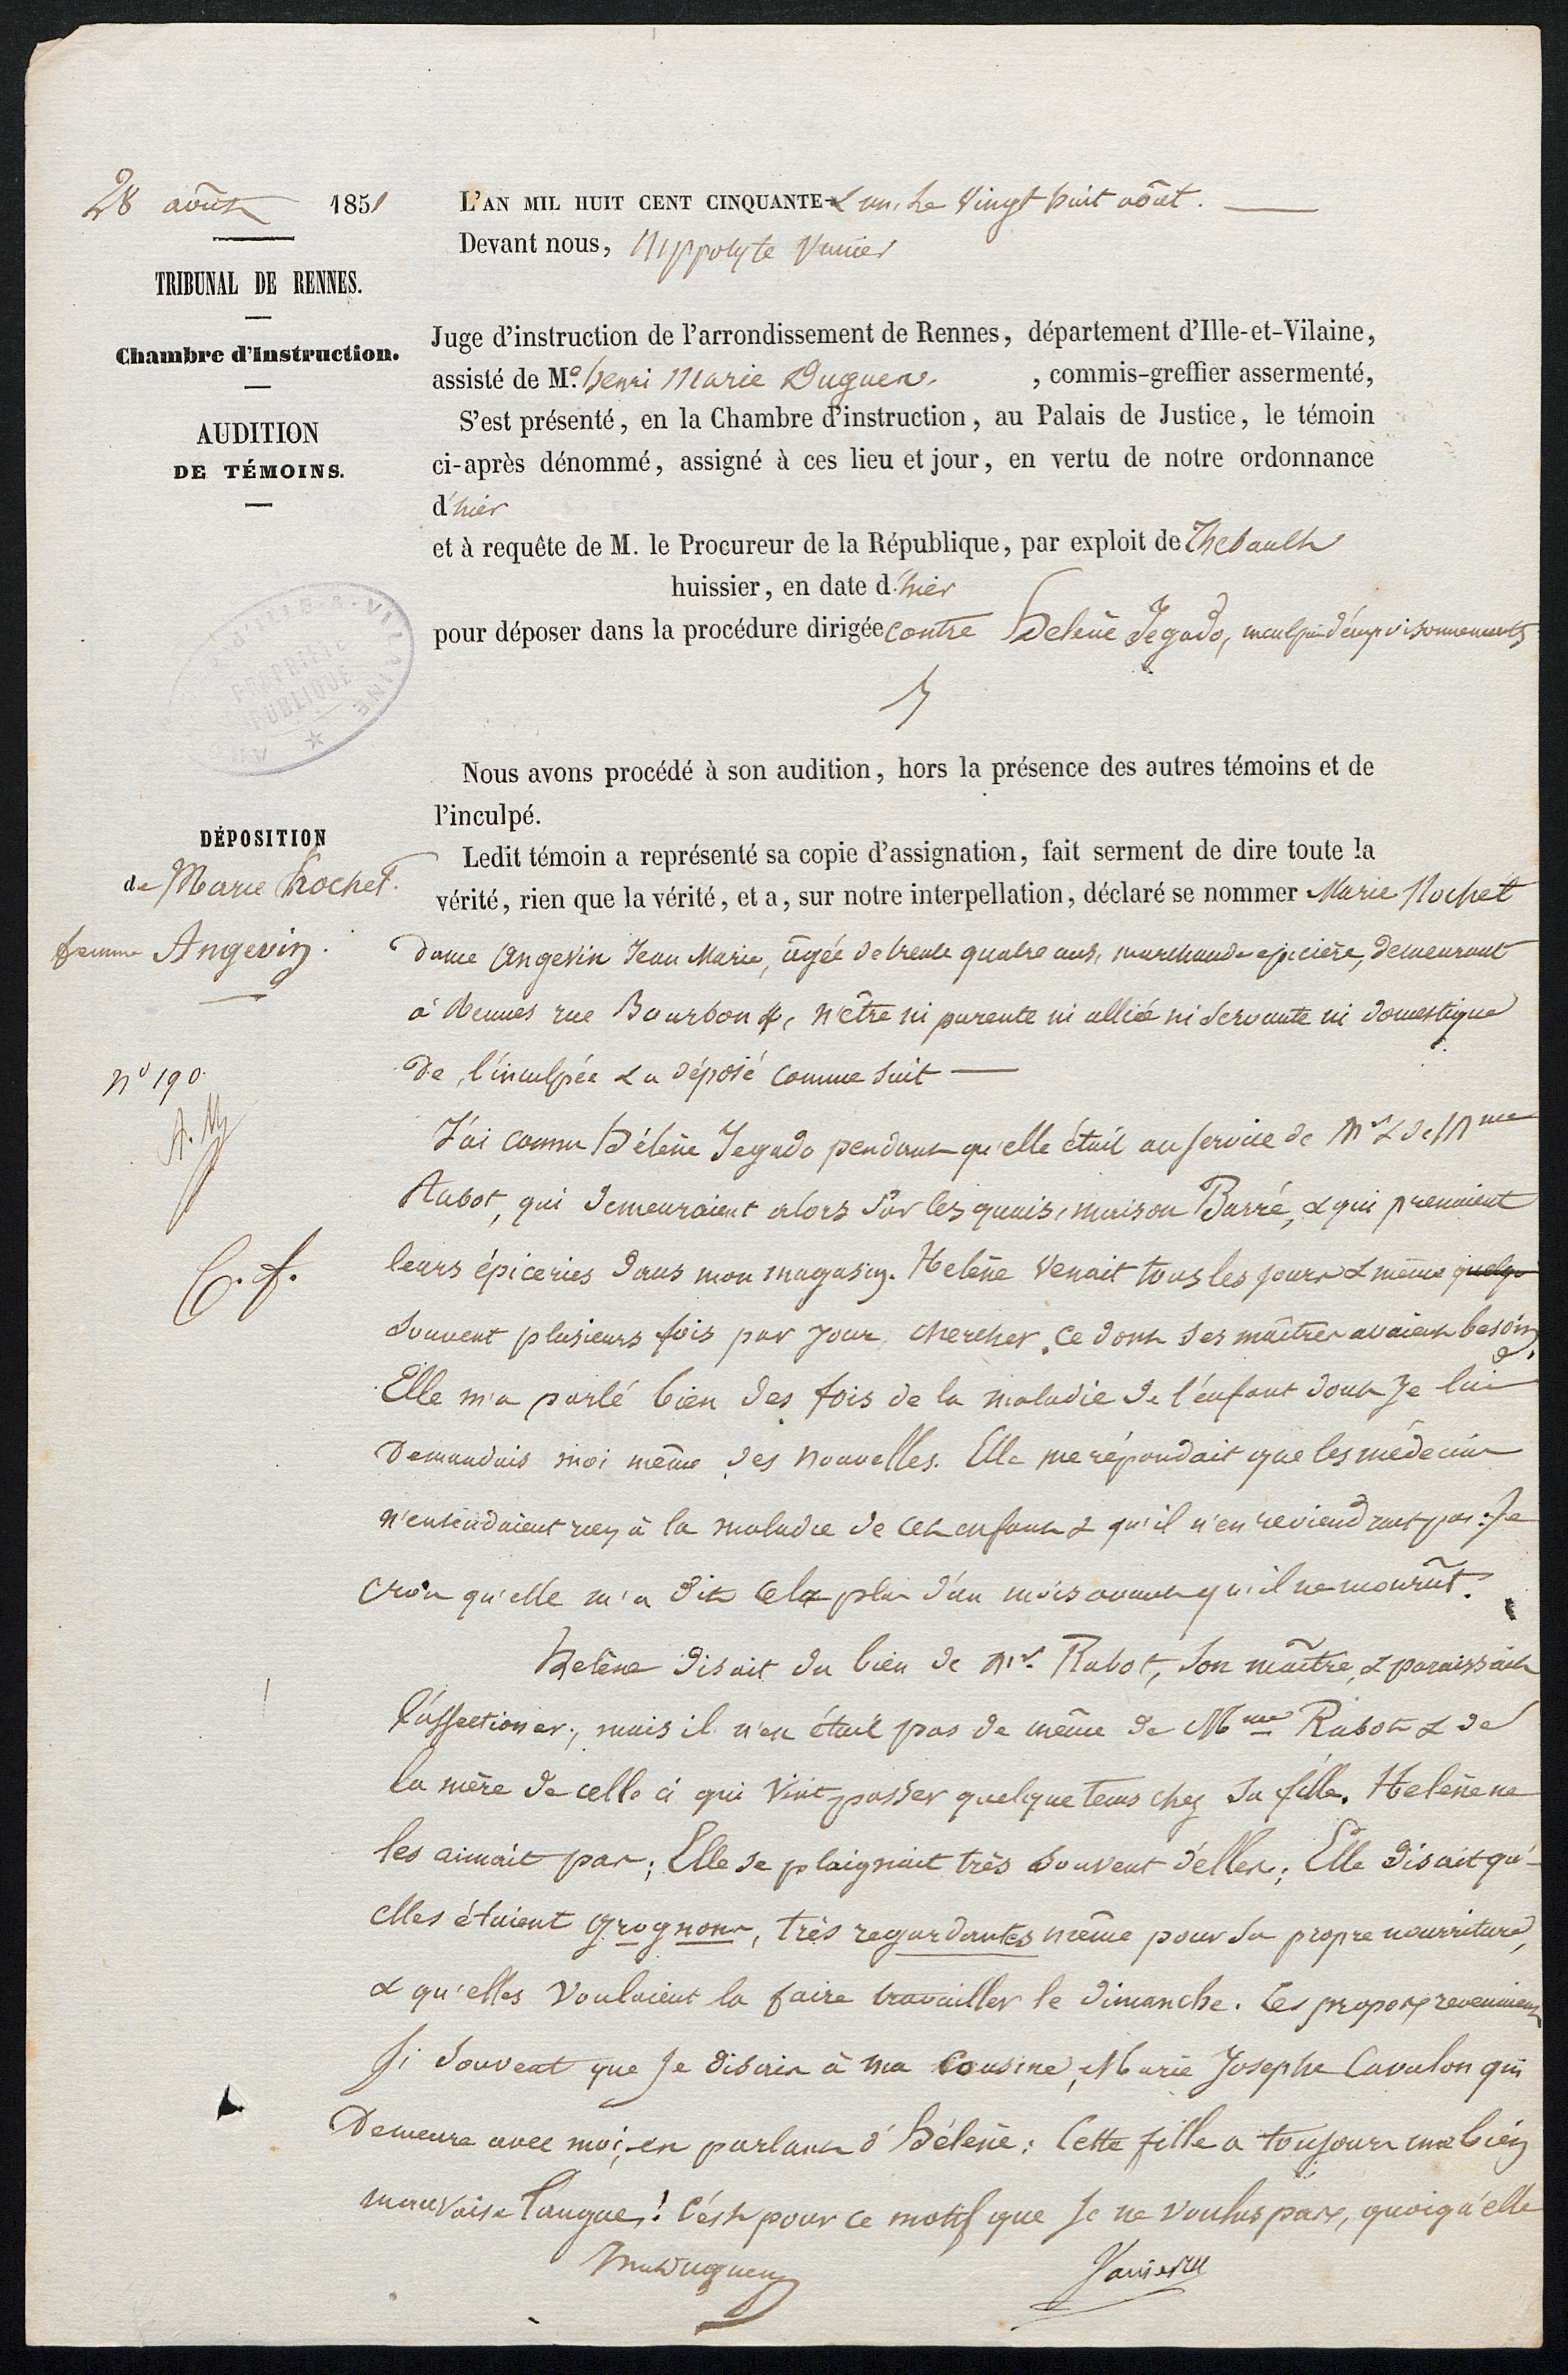 28 août 1851
TRIBUNAL DE RENNES.
Chambre d'Instruction.
AUDITION
DE TÉMOINS.
L'AN MIL HUIT CENT CINQUANTE-& un, le Vingt huit août.
Devant nous, Hippolyte Vannier
Juge d'instruction de l'arrondissement de Rennes, département d'Ille-et-Vilaine,
assisté de Me. henri Marie Duguen , commis-greffier assermenté,
S'est présenté, en la Chambre d'instruction, au Palais de Justice, le témoin
ci-après dénommé, assigné à ces lieu et jour, en vertu de notre ordonnance
d'hier
et à requête de M. le Procureur de la République, par exploit de Thebault
huissier, en date d'hier
pour déposer dans la procédure dirigée contre Helène Jegado, inculpée d'empoisonnements
D'ILLE-&-VILAINE
PROPRIÉTÉ
PUBLIQUE
Nous avons procédé à son audition, hors la présence des autres témoins et de
l'inculpé.
DÉPOSITION
de Marie Rochet.
femme Angevin.
Ledit témoin a représenté sa copie d'assignation, fait serment de dire toute la
vérité, rien que la vérité, et a, sur notre interpellation, déclaré se nommer Marie Rochet
dame Angevin Jean Marie, âgée de trente quatre ans, marchande epicière, demeurant
à Rennes rue Bourbon, n'être ni parente ni alliée ni servante ni domestique
de l'inculpée & a déposé comme suit —
n° 190
J'ai connu Hélène Jegado pendant qu'elle était au service de Mr & de Mme
Rabot, qui demeuraient alors sur les quais, maison Barré, & qui prenaient
leurs épiceries dans mon magasin. Helène venait tous les jours & même quelqu
souvent plusieurs fois par jour, chercher ce dont ses maîtres avaient besoin.
Elle m'a parlé bien des fois de la maladie de l'enfant dont je lui
demandais moi même des nouvelles. Elle me répondait que les médecins
n'entendaient rien à la maladie de cet enfant & qu'il n'en reviendrait pas. Je
crois qu'elle m'a dit cela plus d'un mois avant qu'il ne mourût.
Helène disait du bien de Mr. Rabot, son maître, & paraissait
l'affectioner, mais il n'en était pas de même de Mme Rabot & de
la mère de celle ci qui vint passer quelque tems chez sa fille. Helène ne
les aimait pas; Elle se plaignait très souvent d'elles; Elle disait qu'-
elles étaient grognons, très regardantes même pour sa propre nourriture,
& qu'elles voulaient la faire travailler le dimanche. Ces propos revenaient
si souvent que je disais à ma cousine, Marie Josephe Cavalon qui
demeure avec moi, en parlant d'Hélène: Cette fille a toujours une bien
mauvaise langue! C'est pour ce motif que je ne voulus pas, quoiqu'elle